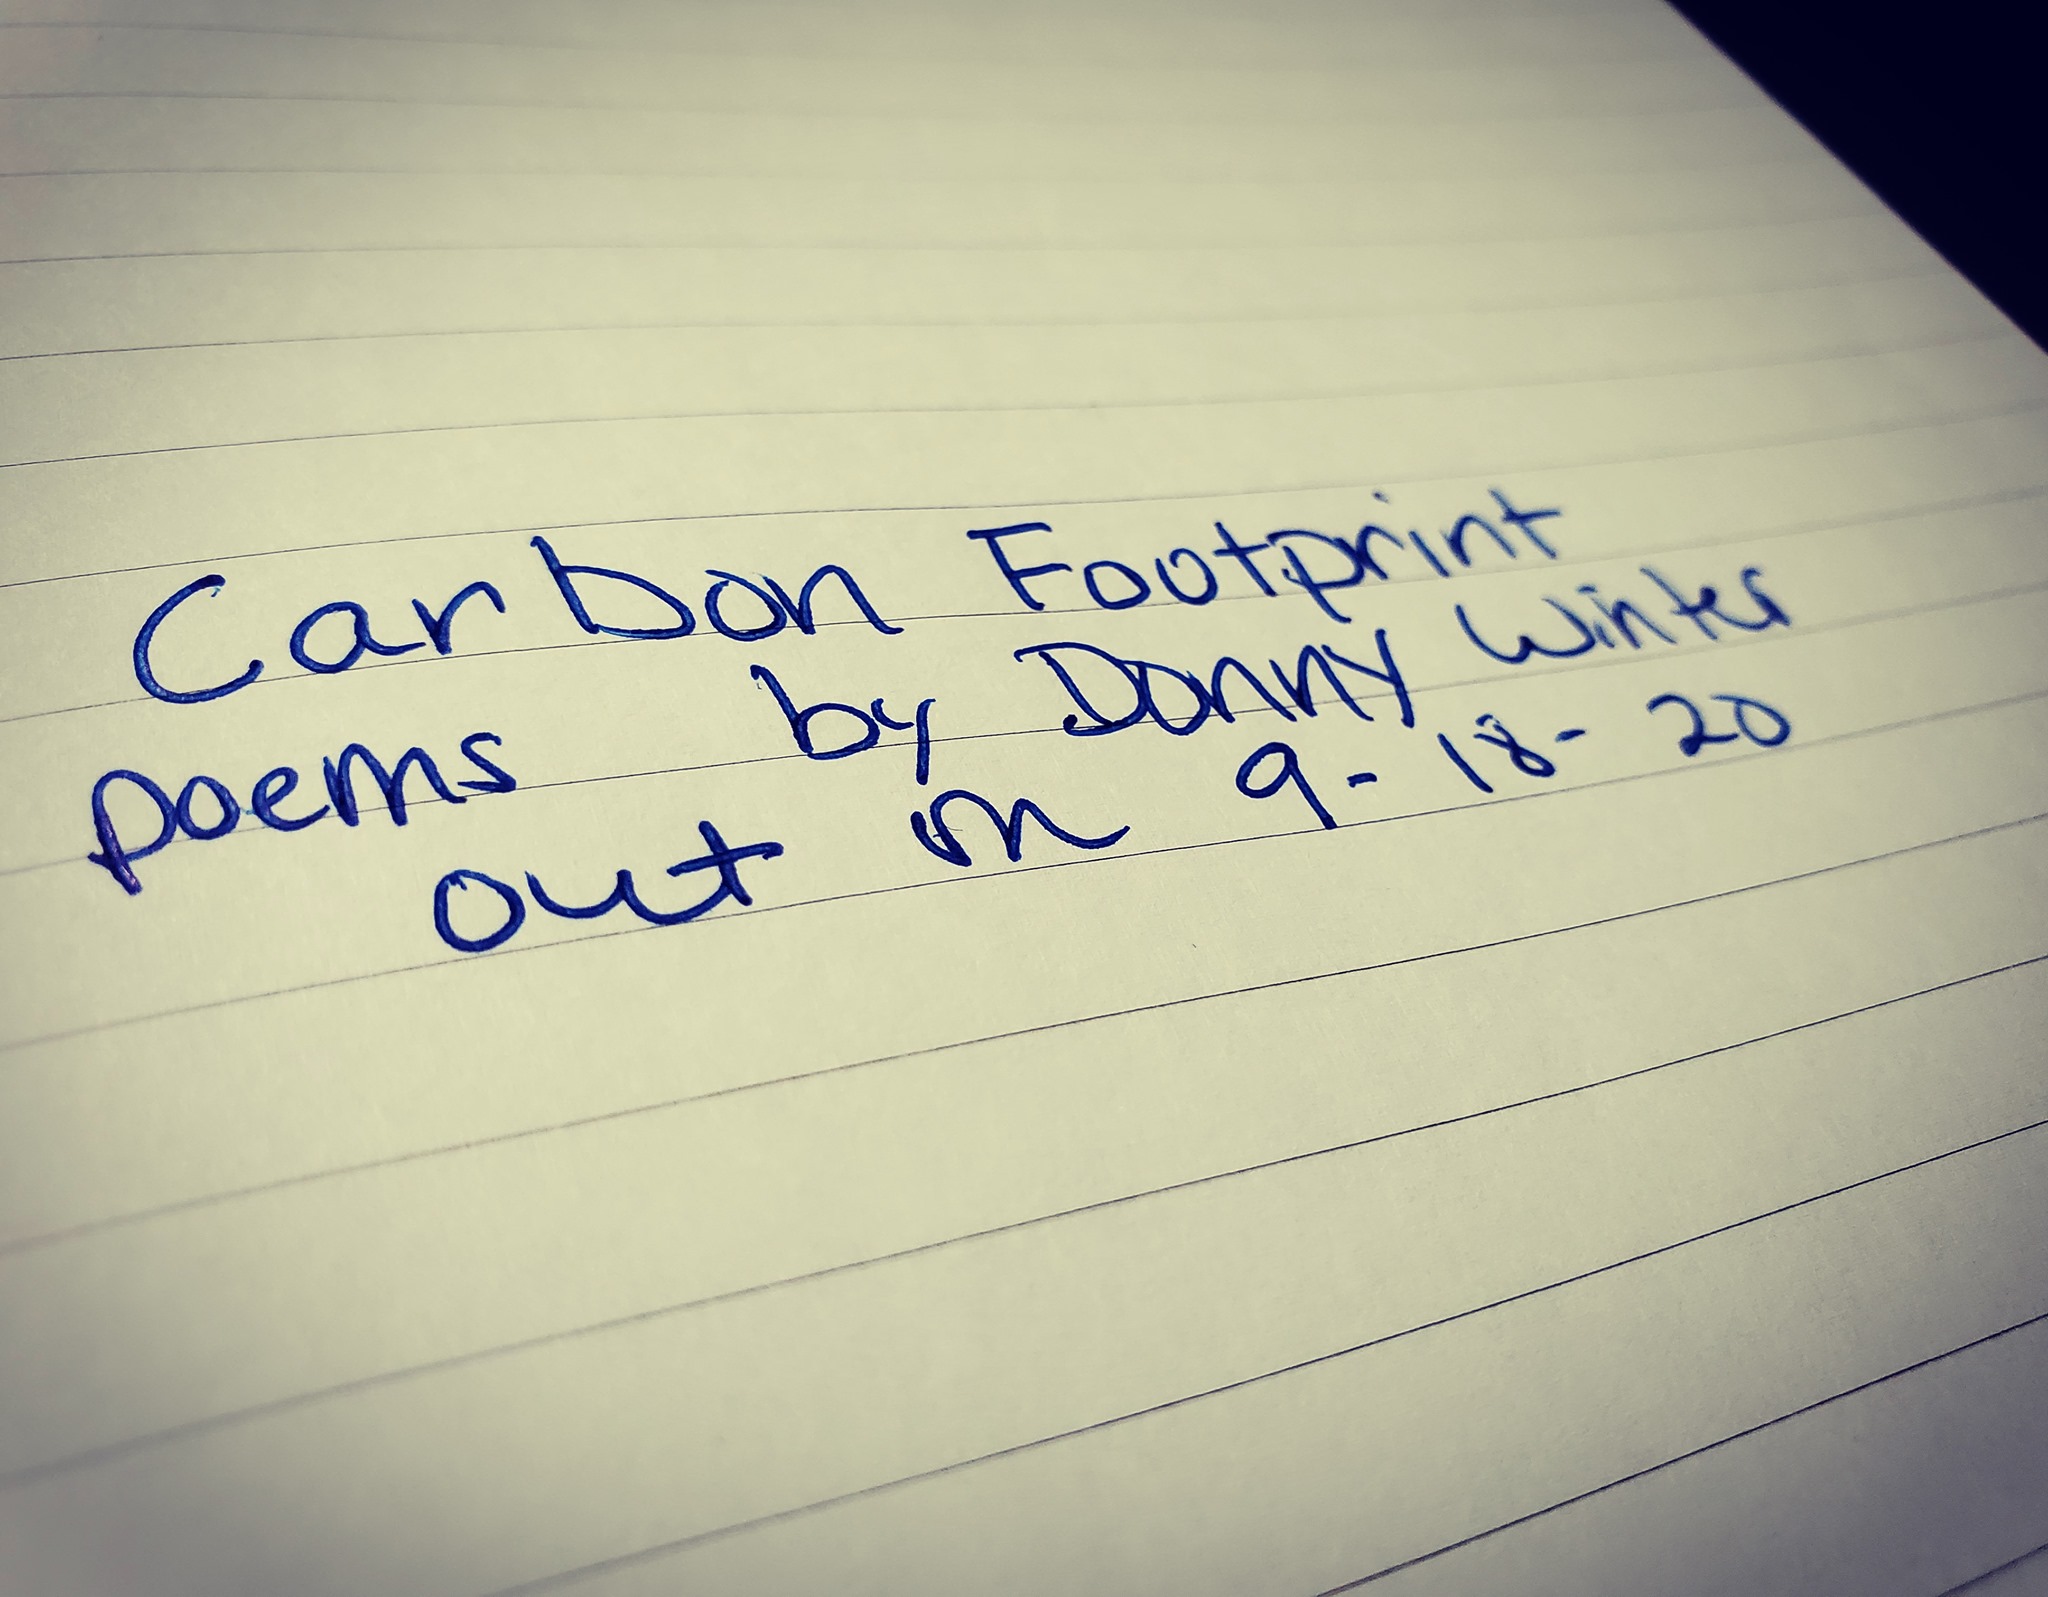 Carbon Footprint
poems by Donny Winter
out on 9-18-20